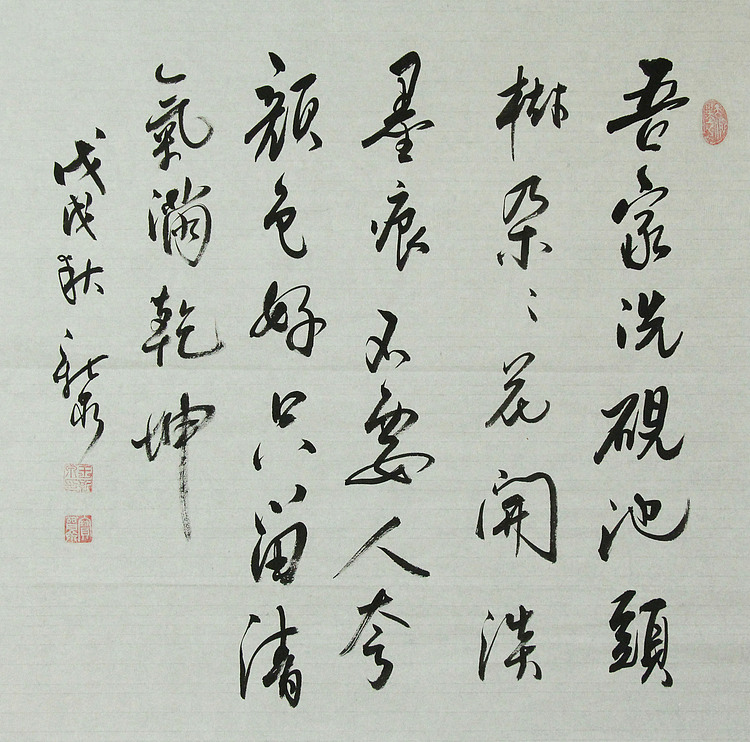 吾家洗硯池頭
樹朶々花開淡
墨痕不要人夸
顔色好只留清
氣滿乾坤
戊戌秋